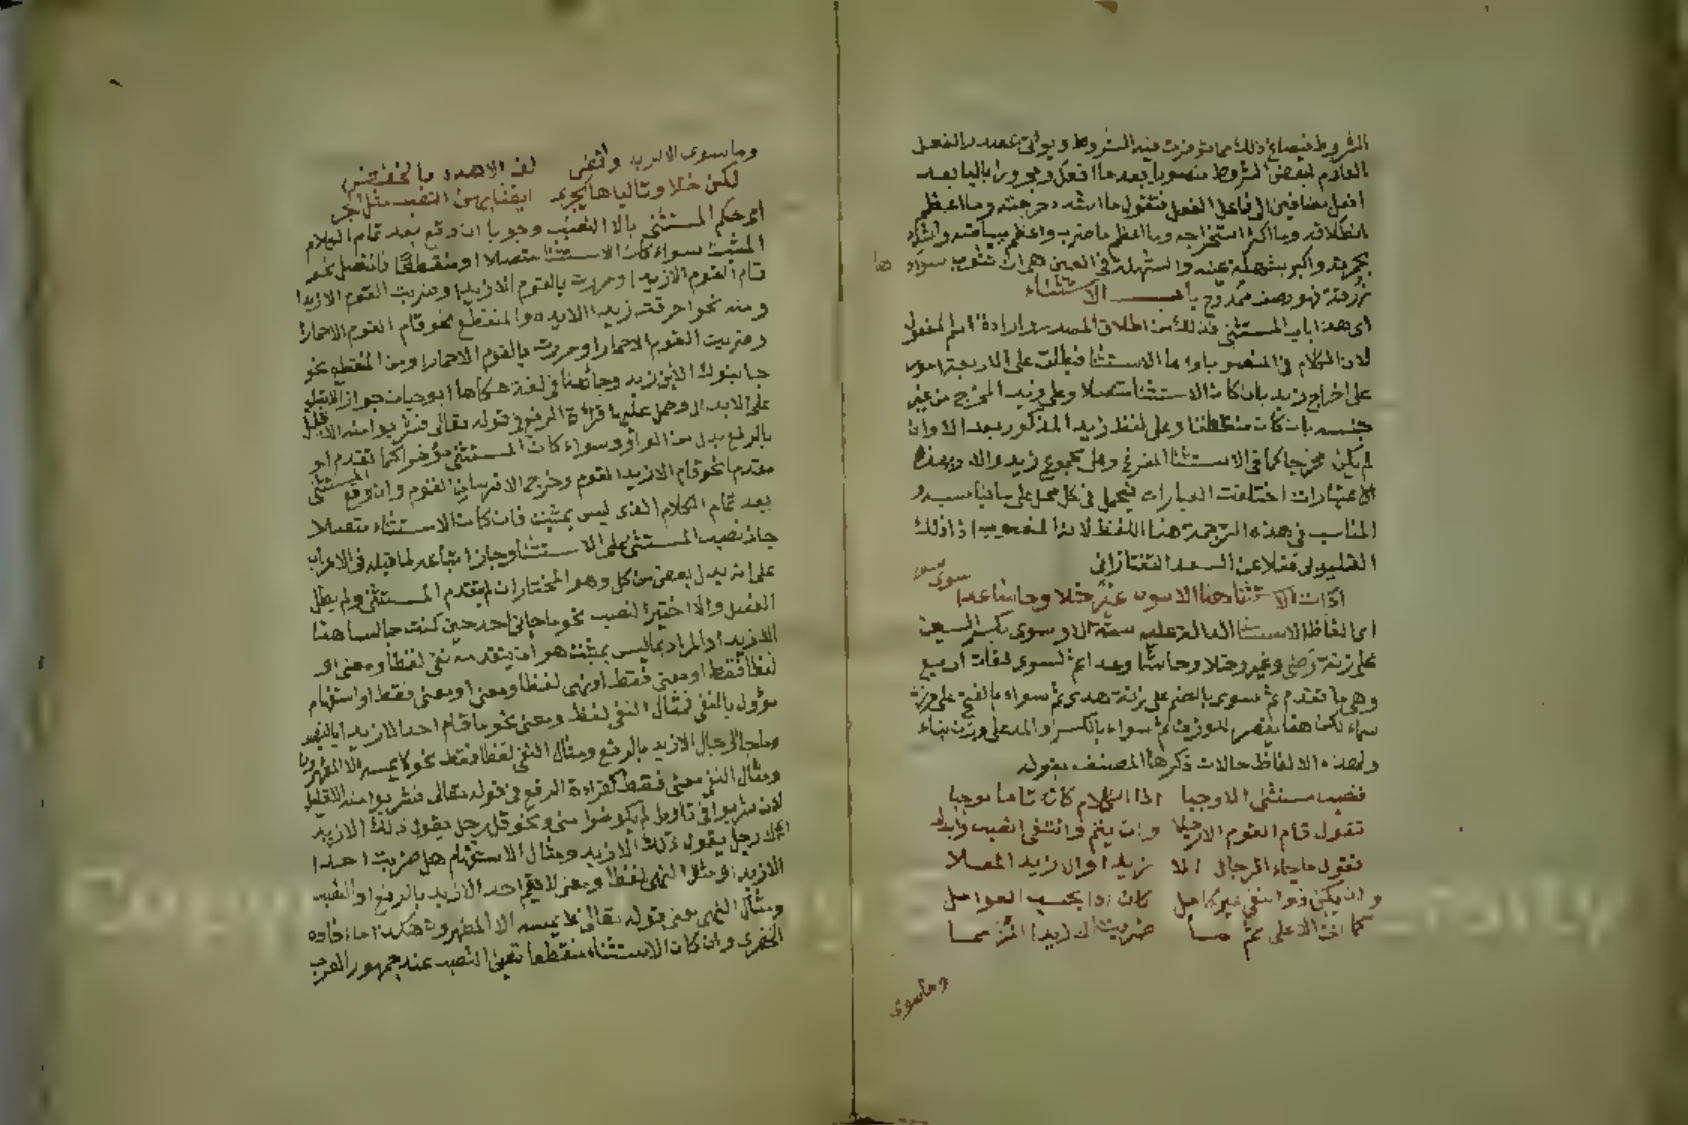 الشروط فيصاغ ذلك مما توفرت فيه الشروط ويؤتى بمصدر الفعل
العادم لبعض الشروط منصوبا بعد ما افعل ومجرورا بالباء بعد
افعل مضافين الى فاعل الفعل فتقول ما اشد دحرجته وما اعظم
انطلاقه وما اكثر استخراجه وما اعظم ما ضرب واعظم ببياضه واشدد
بحمرته واكبر بشهلة عينه والشهلة في العين هي ان تشوب سوادها
زرقة فهو وصف ممدوح باب الاستثناء
اي هذا باب المستثنى فذلك من اطلاق المصدر وارادة اسم المفعول
لان الكلام في المنصوبات اما الاستثنا فيطلق على اربعة امور
على اخراج زيد بان كان الاستثنا متصلا وعلى زيد المخرج من غير
جنسه بان كان منقطعا وعلى لفظ زيد المذكور بعد الا وان
لم يكن مخرجا كما في الاستثنا المفرغ وعلى مجموع زيد والا وبهذه
الاعتبارات اختلفت العبارات فيحمل في كل محل على ما يناسبه و
المناسب في هذه الترجمة هذا اللفظ لانه المنصوب اذ ذلك
القليوبي نقلا عن السعد التفتازاني
اداة الاستثناء هنا الا سوى غير خلا وحاشا عدا
سوى
اي الفاظ الاستثنا الدالة عليه ستة الا وسوى بكسر السين
على زنة رضى وغير وخلا وحاشا وعدا ثم لسوى لغات اربع
وهي ما تقدم ثم سوى بالضم على زنة هدى ثم سواء بالفتح على زنة
سماء لكن هنا يقصر للوزن ثم سواء بالكسر والمد على وزن بناء
ولهذه الالفاظ حالات ذكرها المصنف بقوله
فنصب مستثنى الا وجبا اذا الكلام كان تاما موجبا
تقول قام القوم الا زيدا وان يتم وانتفى انصب وابدلا
فتقول ما جاء الرجال الا زيدا والا زيد المعلا
وان يكن ذو النفي غير كامل كان اذا بحسب العوامل
كما انت الا على ضربت الا زيدا
وما سوى
وما سوى
لكن خلا وتالياها يجرى ايضا
اي حكم المستثنى بالا النصب وجوبا ان وقع بعد تمام الكلام
المثبت سواء كان الاستثنا متصلا او منقطعا فالمتصل نحو
قام القوم الا زيدا ومررت بالقوم الا زيدا وضربت القوم الا زيدا
ومنه نحو احرقت زيدا الا يده والمنقطع نحو قام القوم الا حمارا
وضربت القوم الا حمارا ومررت بالقوم الا حمارا ومن المنقطع نحو
جا بنوك الا ابن زيد وجا هنا في لغة حكاها ابو حيان جواز الاتباع
على الابدال وحمل عليها قراة الرفع في قوله تعالى فشربوا منه الا قليل
بالرفع بدل من الواو وسواء كان المستثنى مؤخرا كما تقدم او
مقدما نحو قام الا زيدا القوم وخرج الا فرسان القوم وان وقع المستثنى
بعد تمام الكلام الذي ليس بمثبت فان كان الاستثناء متصلا
جاز نصب المستثنى على الاستثنا وجاز اتباعه لما قبله في الاعراب
على انه بدل بعض من كل وهو المختار ان لم يتقدم المستثنى ولم يطل
الفصل والا اختير النصب نحو ما جاني احد حين كنت جالسا هنا
الا زيدا والمراد بما ليس بمثبت هو ان يتقدمه نفي لفظا ومعنى او
لفظا فقط او معنى فقط او نهي لفظا ومعنى او معنى فقط او استفهام
مؤول بالنفي فمثال النفي لفظا ومعنى نحو ما قام احد الا زيدا بالنصب
وما جا الرجال الا زيد بالرفع ومثال النفي لفظا فقط نحو لا يمسه الا المطهرون
ومثال النفي معنى فقط كقراءة الرفع في قوله تعالى فشربوا منه الا قليل
لان شربوا في تاويل لم يكونوا مني ونحو قل رجل يقول ذلك الا زيد
اقل رجل يقول ذلك الا زيد ومثال الاستفهام هل ضربت احدا
الا زيدا ومثال النهي لفظا ومعنى لا يقم احد الا زيد بالرفع او النصب
ومثال النهي معنى قوله تعالى لا يمسه الا المطهرون هكذا افاده
الخضري وان كان الاستثناء منقطعا تعين النصب عند جمهور العرب